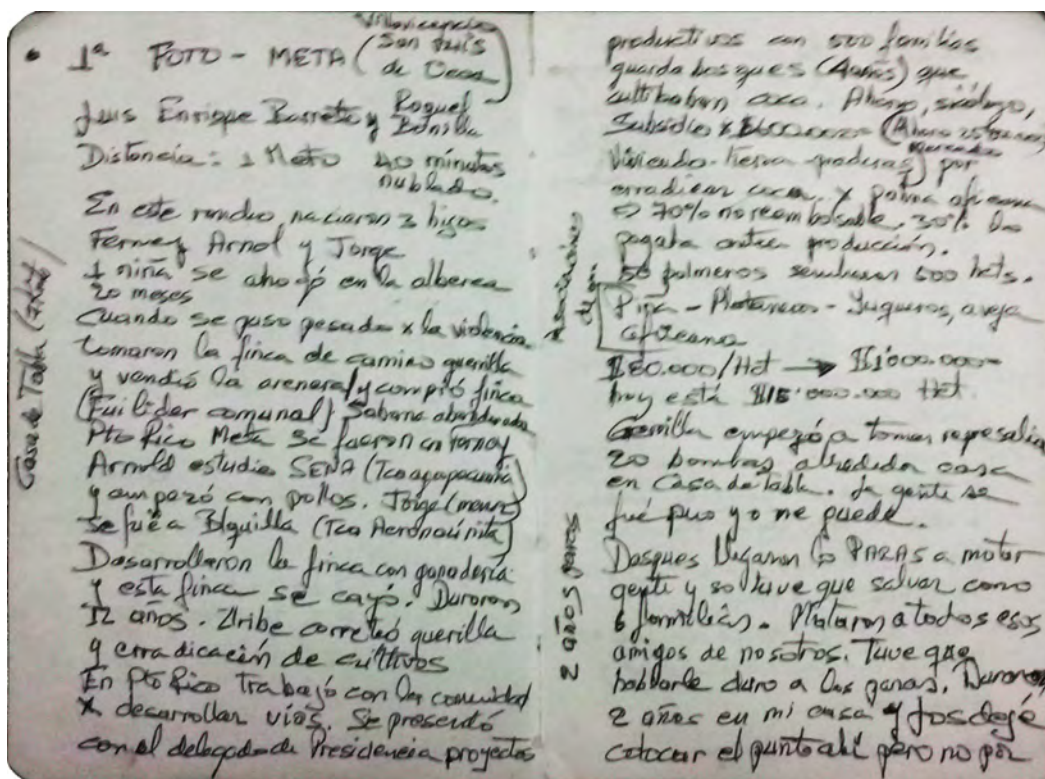 Villavicencio
• 1ª FOTO - META (San Luis
de Ocoa)
Luis Enrique Barreto y Raquel
Bonilla
Distancia: 1 Meto 40 minutos
nublado.
En este rancho, nacieron 3 hijos
Ferney Arnol y Jorge
1 niña se ahogó en la alberca
20 meses
Cuando se puso pesado x la violencia
tomaron la finca de camino guerilla
y vendió la arenera y compró finca
(Fui líder comunal) Sabana
Pto Rico Meta se fueron con Ferney
Arnold estudio SENA (Tco
y empezó con pollos. Jorge (menor)
se fué a B/quilla (Tco Aeronaúnita)
Desarrollaron la finca con ganadería
y esta finca se cayó. Duraron
12 años. Uribe correteó guerilla
y erradicación de cultivos
En Pto Rico trabajó con la comunidad
x desarrollar vías. Se presentó
con el delegado de Presidencia proyectos
Casa de Tabla
productivos con 500 familias
guarda bosques (4 años) que
cultibaban coca. Ahorro, sicólogo,
Subsidio x $600.000=
vivienda-tierra-praderas) por
erradicar coca. x palma africana
70% no reembolsable. 30% lo
pagaba entre producción.
50 palmeros sembraron 500 hets.
Asociaciones
de
Piña - Plataneros - Yuqueros, oveja
africana
$80.000/Het → $1'000.000=
hoy está $15'000.000 Het.
Gerrilla empezó a tomar represalia
20 bombas alrededor casa
en Casa de Tabla. La gente se
fué pero yo me quedé.
2 años PARAS
Despues llegaron los PARAS a matar
gente y solo tuve que salvar como
6 familias. Mataron a todos esos
amigos de nosotros. Tuve que
hablarle duro a los paras. Duraron
2 años en mi casa y los dejé
colocar el punto ahí pero no por